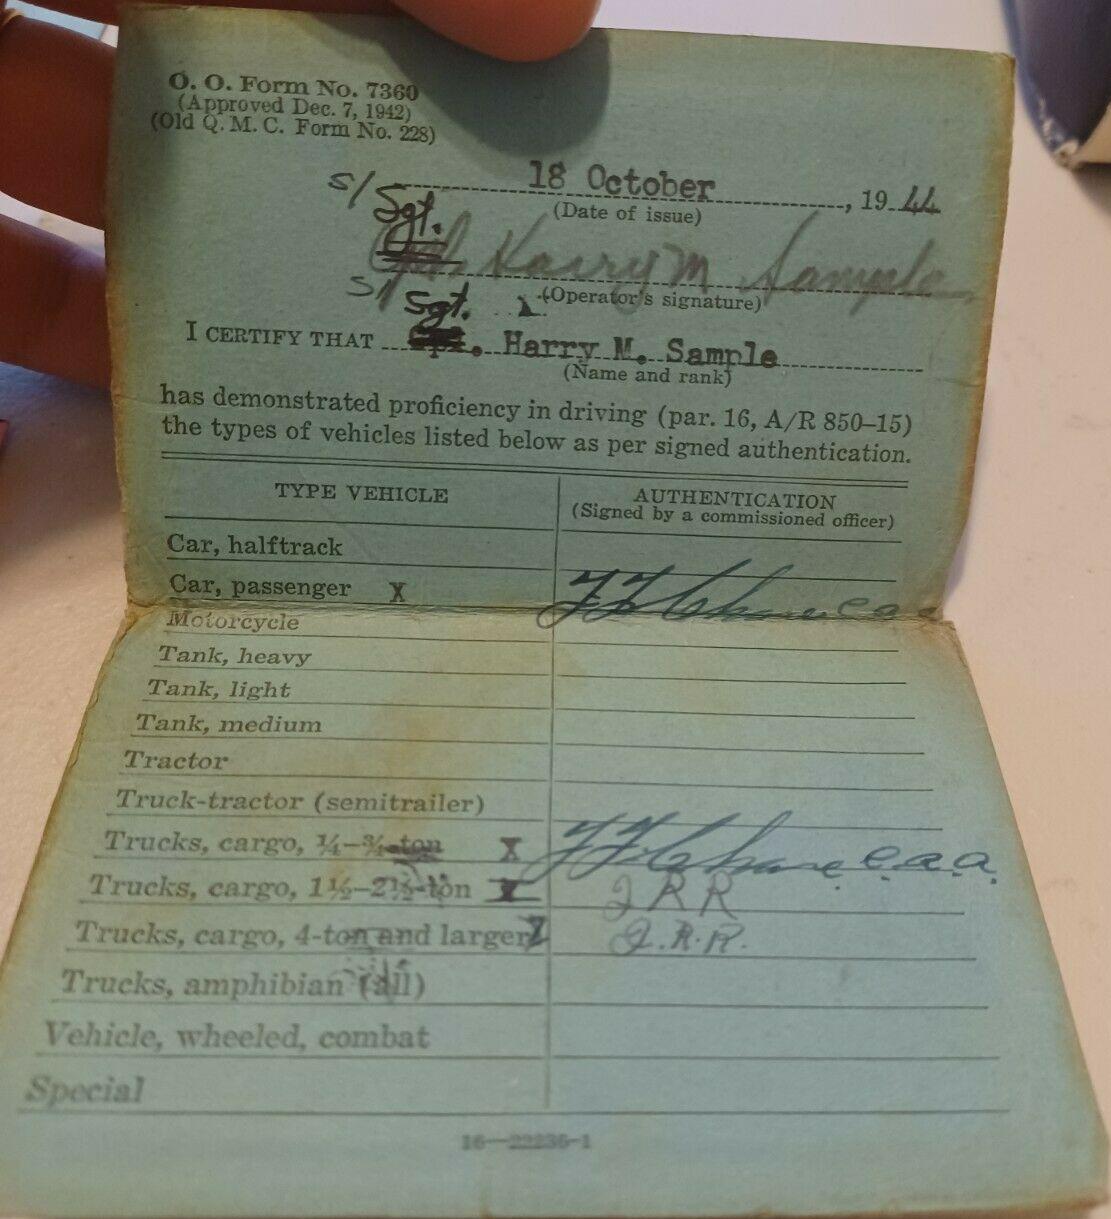 O. O. Form No. 7360
(Approved Dec. 7, 1942)
(Old Q. M. C. Form No. 228)
18 October, 1944
S/ Sgt.
(Date of issue)
Harry M Sample
S/ Sgt.
(Operator's signature)
I CERTIFY THAT . Harry M. Sample
(Name and rank)
has demonstrated proficiency in driving (par. 16, A/R 850–15)
the types of vehicles listed below as per signed authentication.
TYPE VEHICLE AUTHENTICATION
(Signed by a commissioned officer)
Car, halftrack
Car, passenger X
Motorcycle
Tank, heavy
Tank, light
Tank, medium
Tractor
Truck-tractor (semitrailer)
Trucks, cargo, ¼–¾-ton X
Trucks, cargo, 1½–2½-ton X J R R
Trucks, cargo, 4-ton and larger J.R.R.
Trucks, amphibian (all)
Vehicle, wheeled, combat
Special
16—22236-1